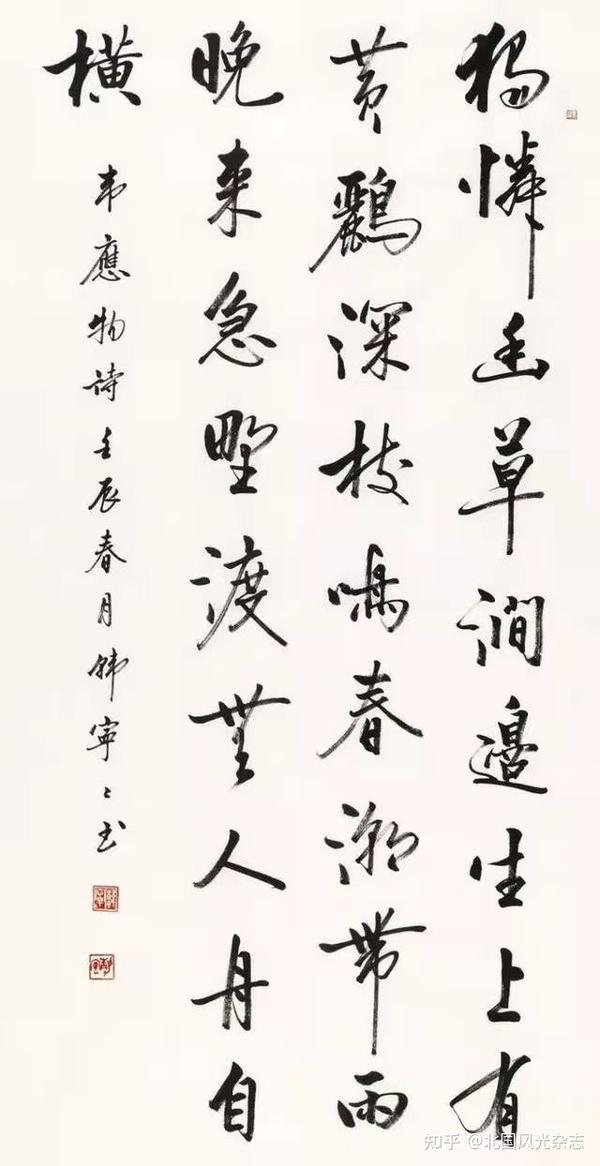 獨憐幽草澗邊生上有
黄鸝深樹鳴春潮帶雨
晚来急野渡無人舟自
橫
韋應物詩壬辰春月韩寧々书
知乎 @北国风光杂志